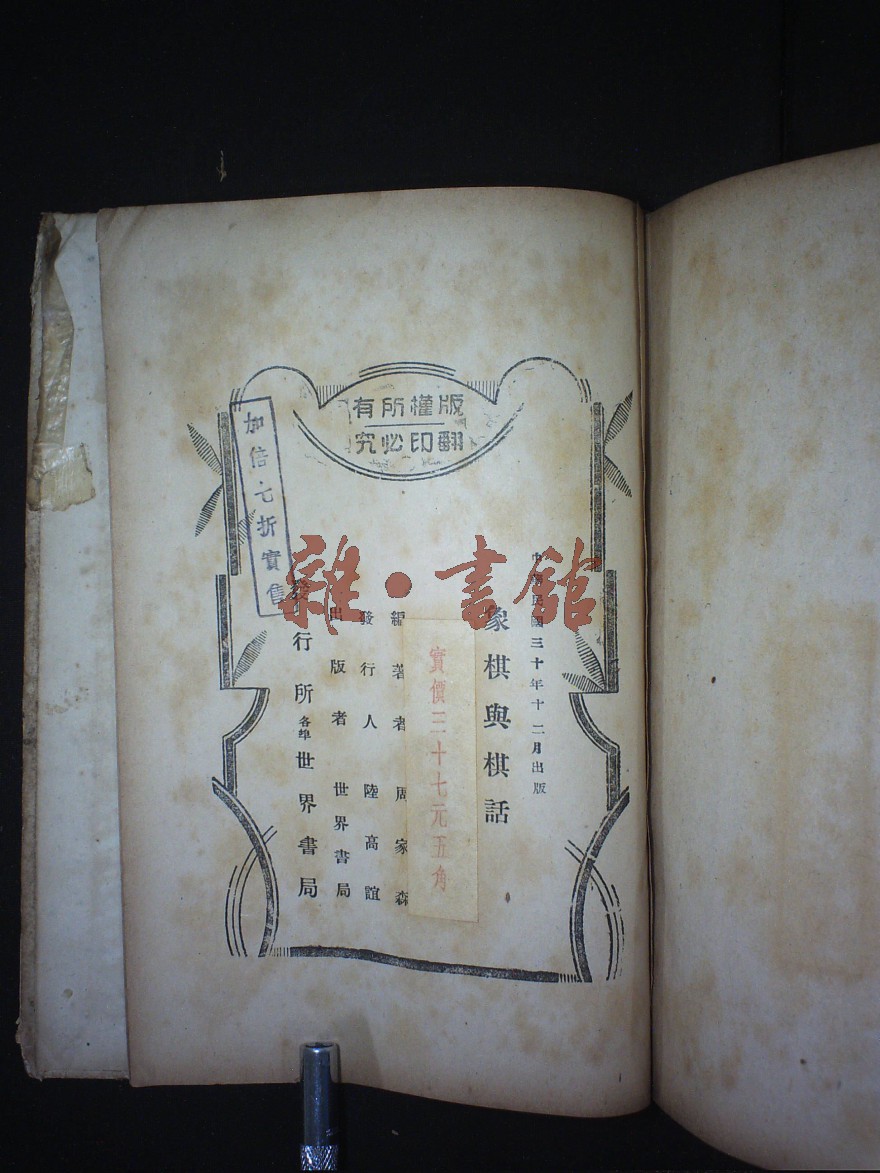 版權所有
翻印必究
中華民國三十年十二月出版
象棋與棋話
實價三十七元五角
編著者 周家森
發行人 陸高誼
出版者 世界書局
發行所 各埠 世界書局
加倍七折實售
雜·書館